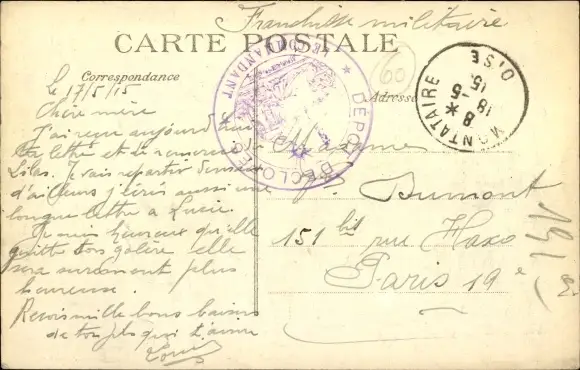 Franchise militaire
CARTE POSTALE
Correspondance
Adresse
le 17/5/15
Chère mère
J'ai reçu aujourd'hui
ta lettre et de remercie
Lilas. Je vais repartir demain
d'ailleurs j'écris aussi une
longue lettre a Lucie.
Je suis heureux qu'elle
quitte ton galère elle
sera surement plus
heureuse.
Reçois mille bons baisers
de ton fils qui t'aime
Louis
LE COMMANDANT
DÉPÔT D'ÉCLOPÉS
60
MONTATAIRE
OISE
8 *
18-5
15
Madame
Dumont
151 bis rue Haxo
Paris 19e
191